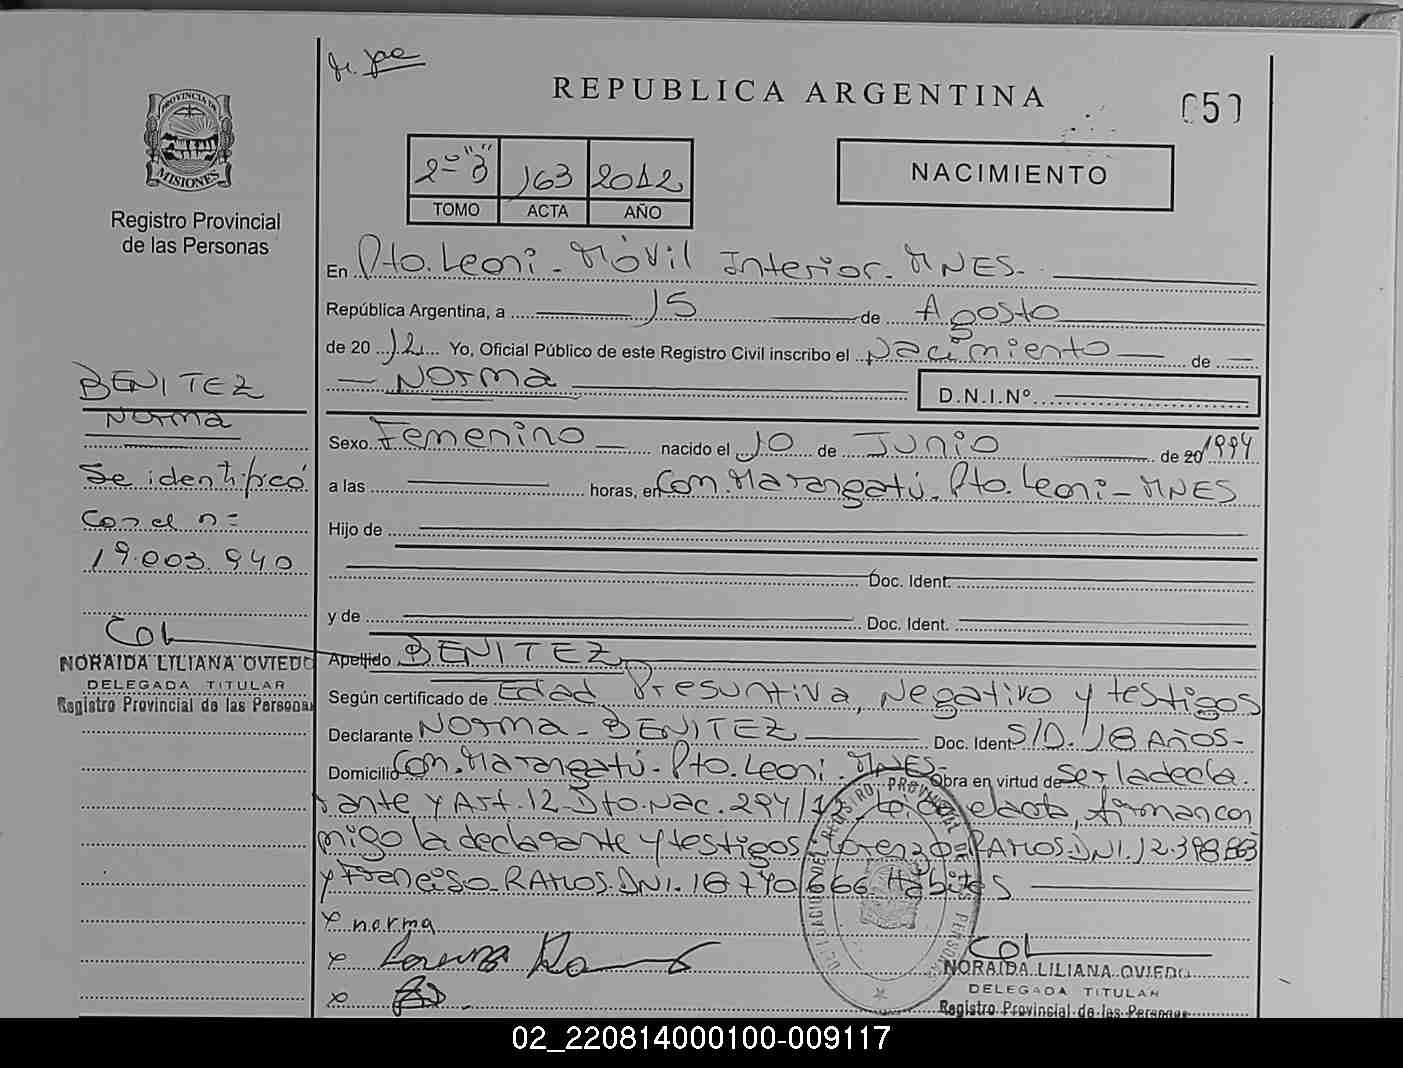 REPUBLICA ARGENTINA
PROVINCIA DE
MISIONES
Registro Provincial
de las Personas
2º "B" 163 2012
TOMO ACTA AÑO
NACIMIENTO
En Pto. Leoni - Móvil Interior - MNES -
República Argentina, a 15 de Agosto
de 2012 Yo, Oficial Público de este Registro Civil inscribo el nacimiento de
Norma
D.N.I.Nº
BENITEZ
Norma
Se identificó
con el nº
19.003.940
NORAIDA LILIANA OVIEDO
DELEGADA TITULAR
Registro Provincial de las Personas
Sexo Femenino nacido el 10 de Junio de 20 1994
a las horas, en Com. Marangatú - Pto. Leoni - MNES
Hijo de
Doc. Ident.
y de Doc. Ident.
Apellido BENITEZ
Según certificado de Edad Presuntiva, Negativo y testigos
Declarante Norma - BENITEZ Doc. Ident S/D. 18 AÑOS -
Domicilio Com. Marangatú - Pto. Leoni - MNES - Obra en virtud de ser la decla
rante y Art. 12 Dto. Nac. 294/12 el acta, firman con
migo la declarante y testigos Lorenzo RAMOS DNI. 12.398.863
y Francisco RAMOS DNI. 18.740.666 Hábiles
x norma
x
x
NORAIDA LILIANA OVIEDO
DELEGADA TITULAR
Registro Provincial de las Personas
02_220814000100-009117